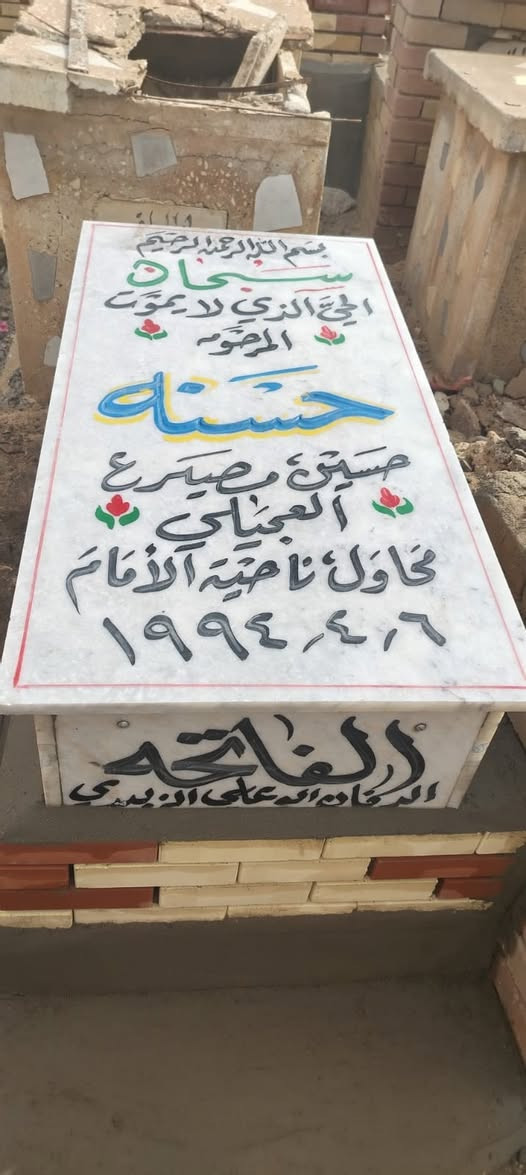 بسم الله الرحمن الرحيم
سبحان
الحي الذي لا يموت
المرحومه
حسنه
حسين مصيرع
العجيلي
محاويل ناحية الأمام
١٩٩٤/٤/٦
الفاتحه
الدفان علي الزبيدي